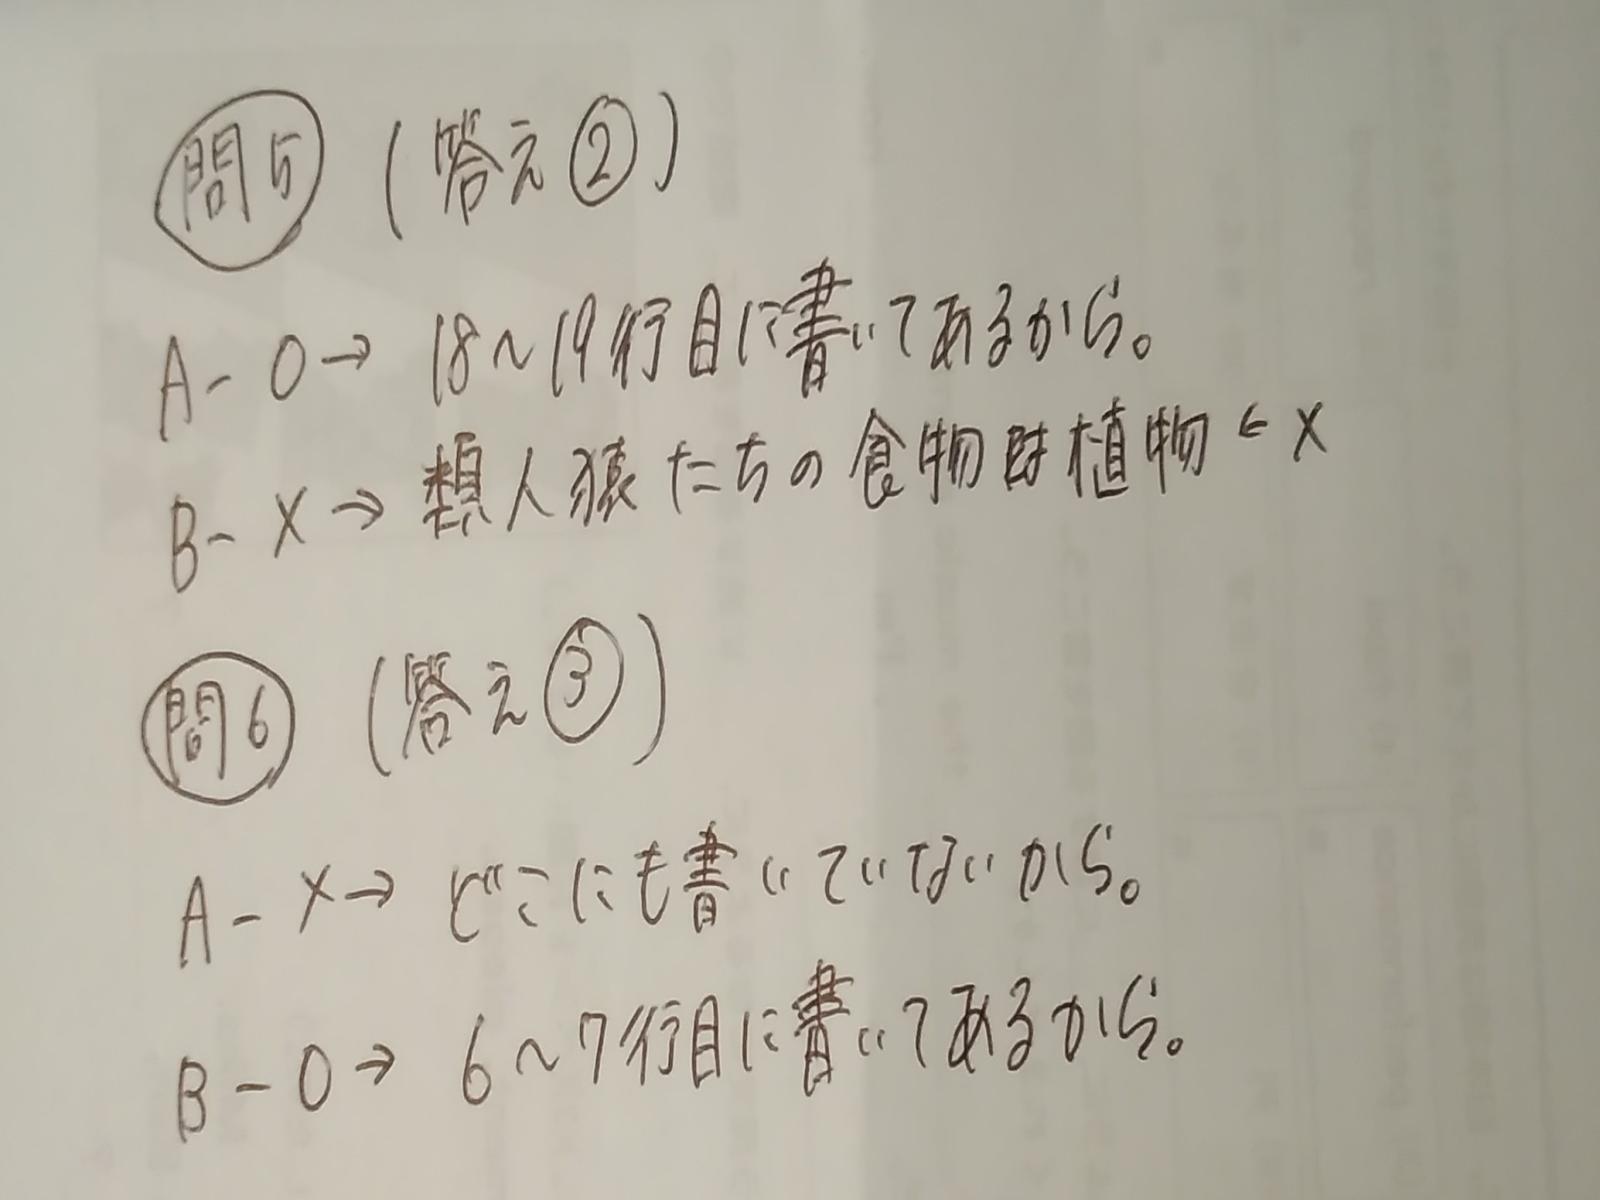 問5 (答え②)
A-O→ 18~19行目に書いてあるから。
B-X→ 類人猿たちの食物は植物←X
問6 (答え③)
A-X→ どこにも書いていないから。
B-O→ 6~7行目に書いてあるから。